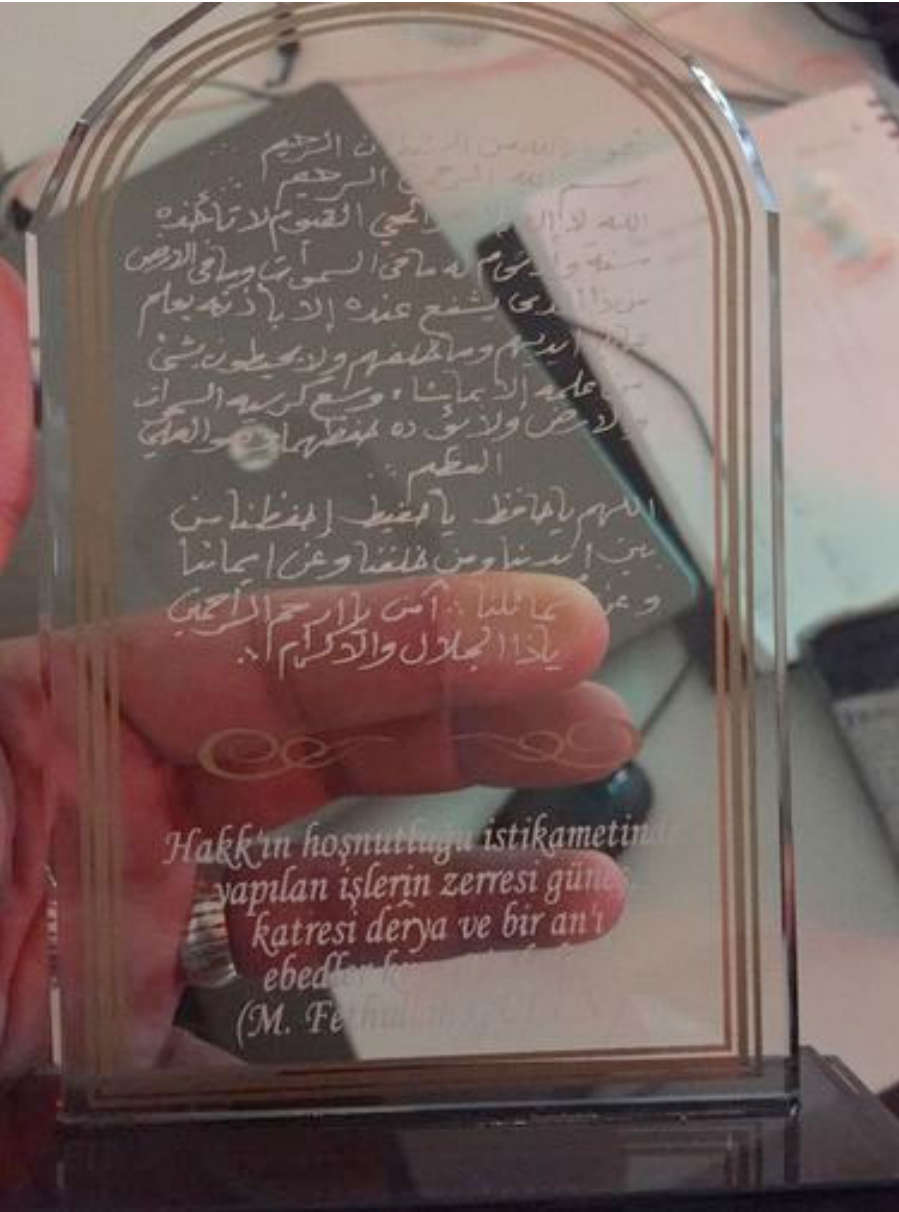 الرجيم
الرحمن الرحيم
الله لا الحي القيوم لا تأخذه
سنة ولا نوم له ما في السموات وما في الارض
يشفع عنده إلا باذنه يعلم
ايديهم وما خلفهم ولا يحيطون بشئ
من علمه إلا بما شاء وسع كرسيه السموات
والارض ولا يؤده حفظهما وهو العلي
العظيم
اللهم يا حافظ يا حفيظ إحفظنا من
بين ايدينا ومن خلفنا وعن ايماننا
وعن شمائلنا آمين يا ارحم الراحمين
يا ذا الجلال والاكرام
Hakk'ın hoşnutluğu istikametinde
yapılan işlerin zerresi güneş
katresi derya ve bir an'ı
(M. Fethullah